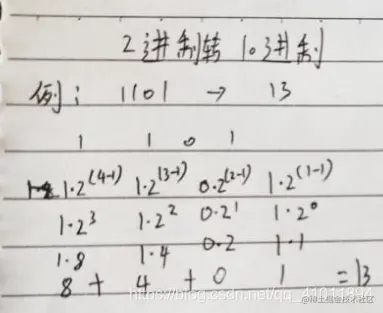 2进制转10进制
例: 1101 → 13
1 1 0 1
1·2^(4-1) 1·2^(3-1) 0·2^(2-1) 1·2^(1-1)
1·2³ 1·2² 0·2¹ 1·2⁰
1·8 1·4 0·2 1·1
8 + 4 + 0 1 =13
https://blog.csdn.net/qq_41011894
@稀土掘金技术社区